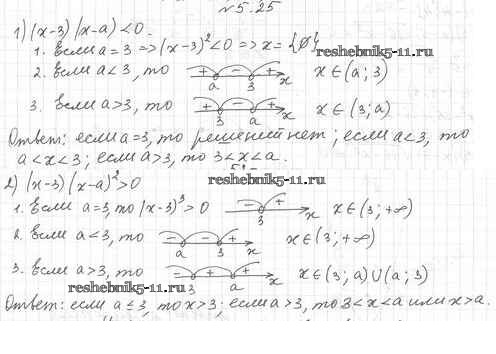 №5.25
1) (x-3)(x-a)<0.
1. Если a=3 => (x-3)²<0 => x={∅}
reshebnik5-11.ru
2. Если a<3, то + - + a 3 x x∈(a;3)
3. Если a>3, то + - + 3 a x x∈(3;a)
Ответ: если a=3, то решений нет; если a<3, то
a<x<3; если a>3, то 3<x<a.
2) (x-3)(x-a)²>0 reshebnik5-11.ru
1. Если a=3, то (x-3)³>0 - + 3 x x∈(3;+∞)
2. Если a<3, то - - + a 3 x x∈(3;+∞)
3. Если a>3, то - + + 3 a x x∈(3;a)∪(a;3)
reshebnik5-11.ru
Ответ: если a≤3, то x>3; если a>3, то 3<x<a или x>a.